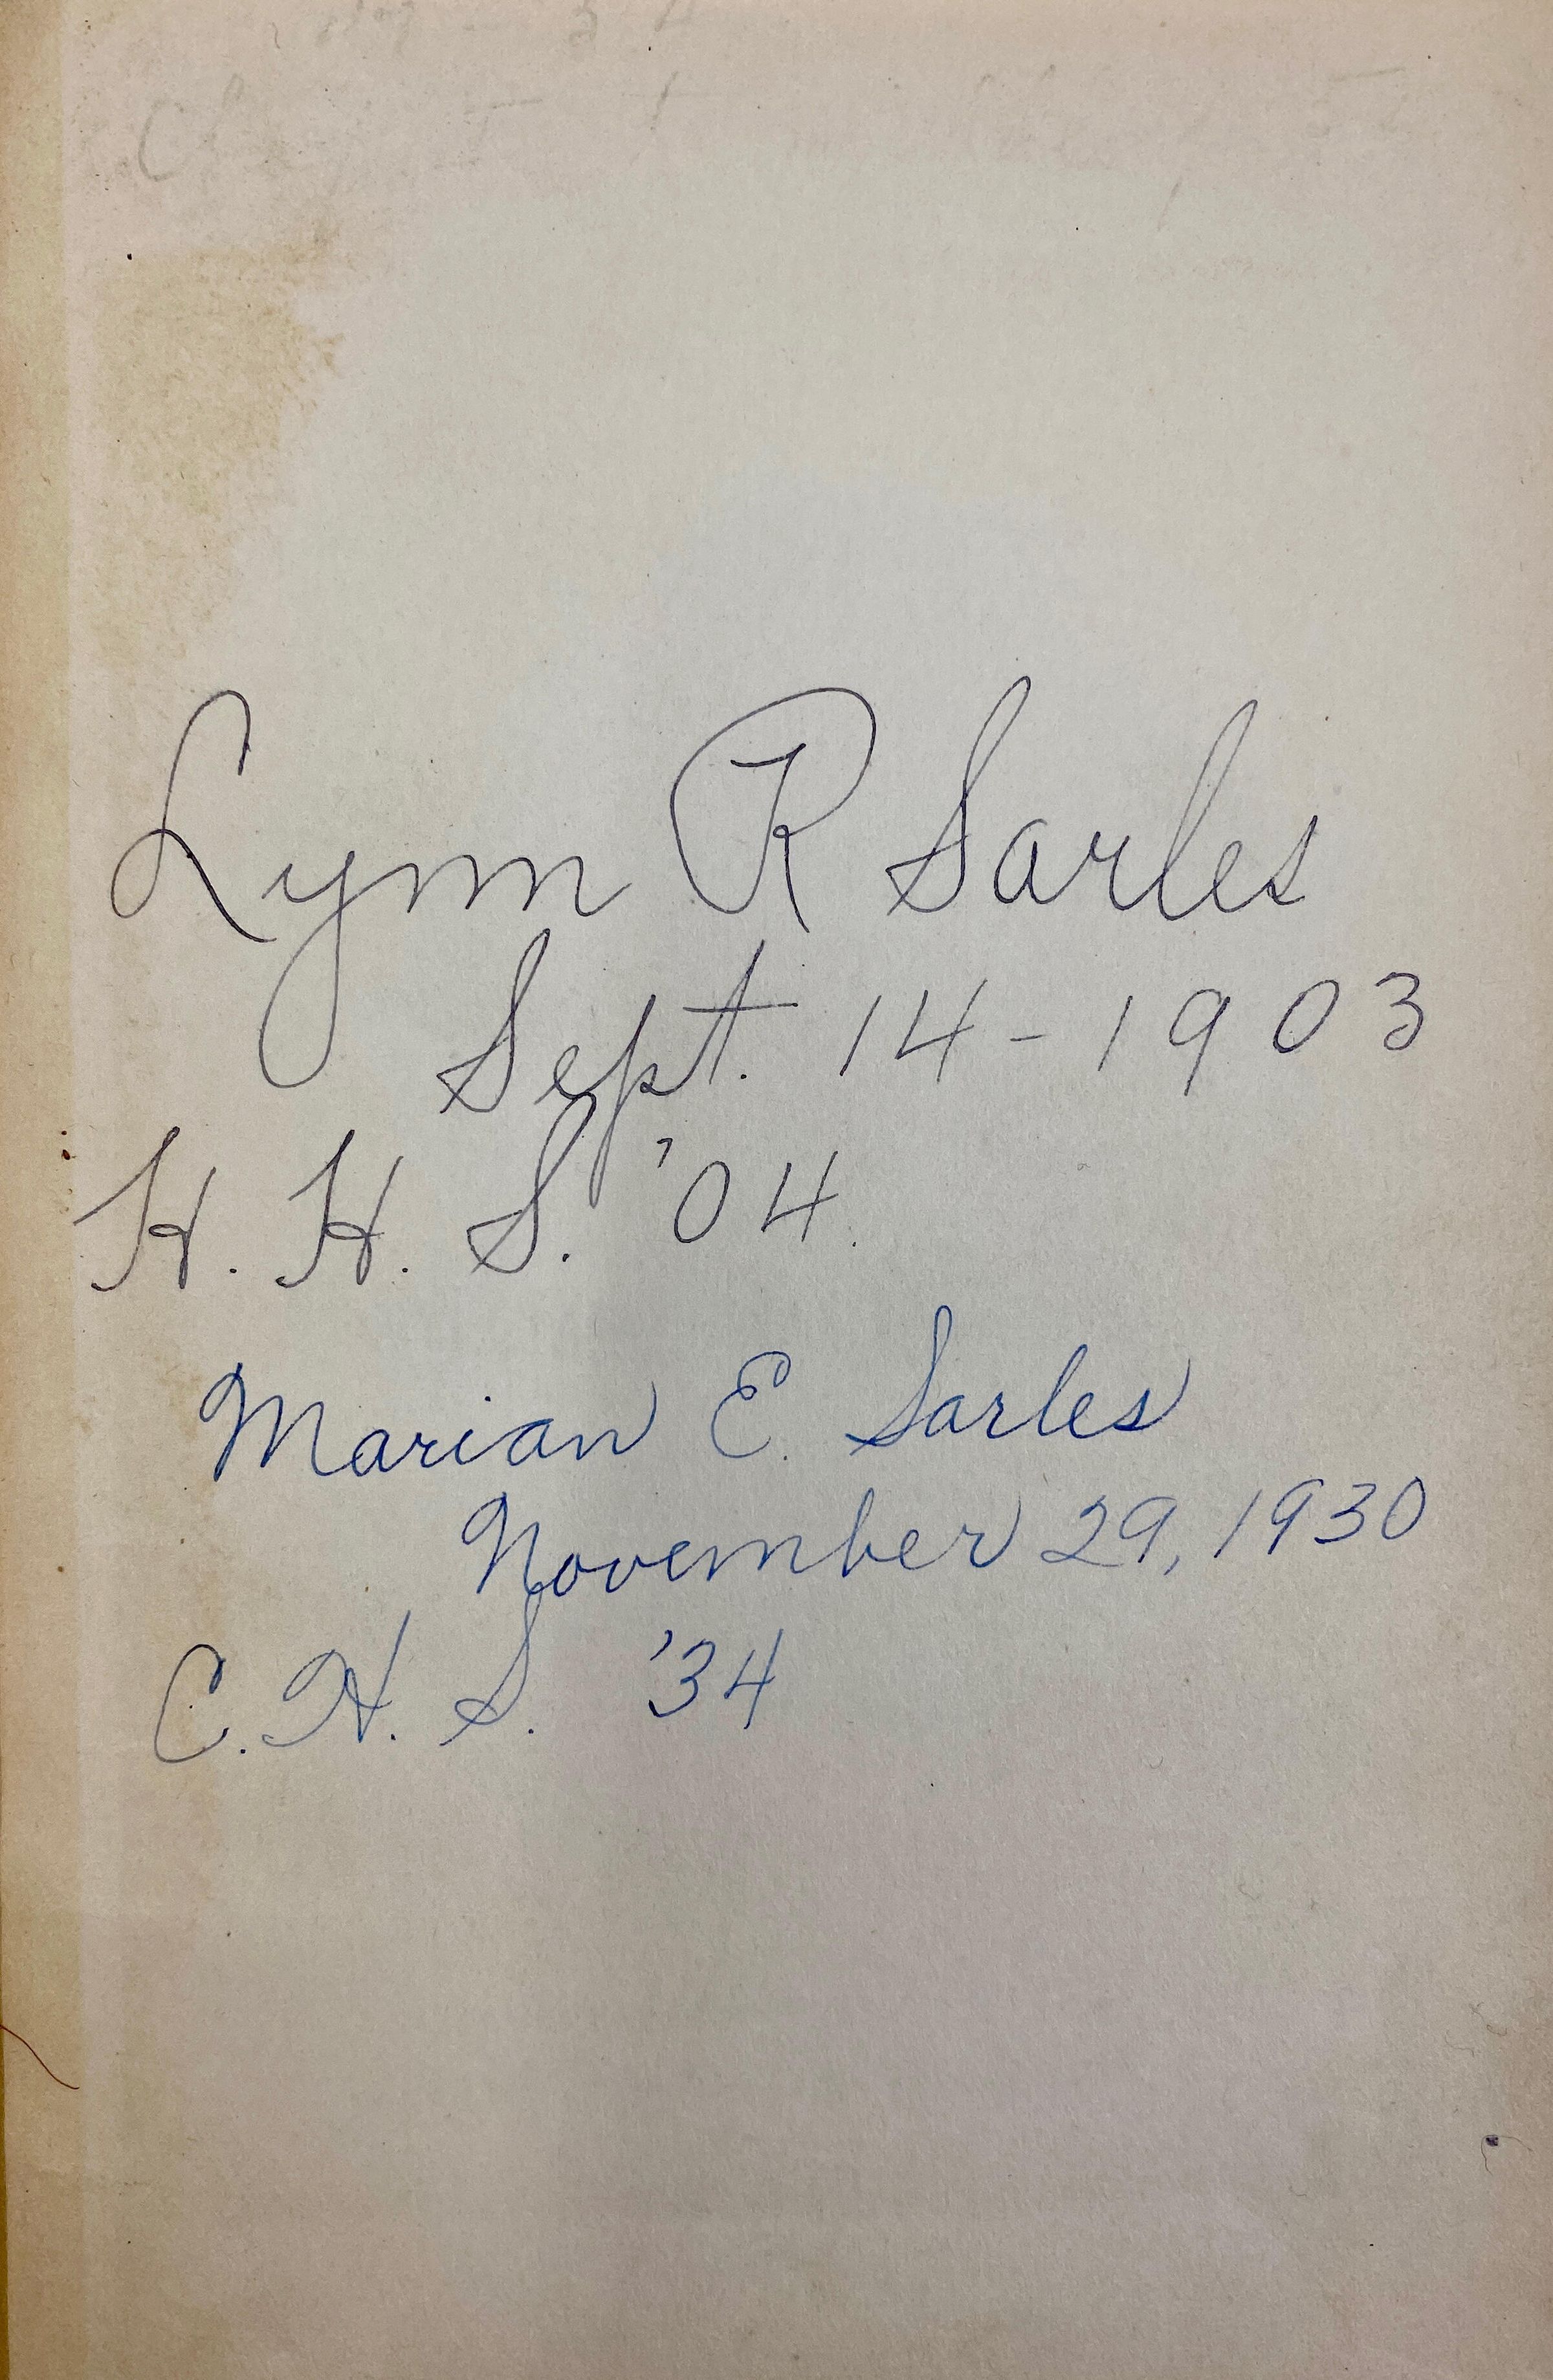 Lynn R Sarles
Sept. 14 - 1903
H. H. S. '04.
Marian E. Sarles
November 29, 1930
C. H. S. '34